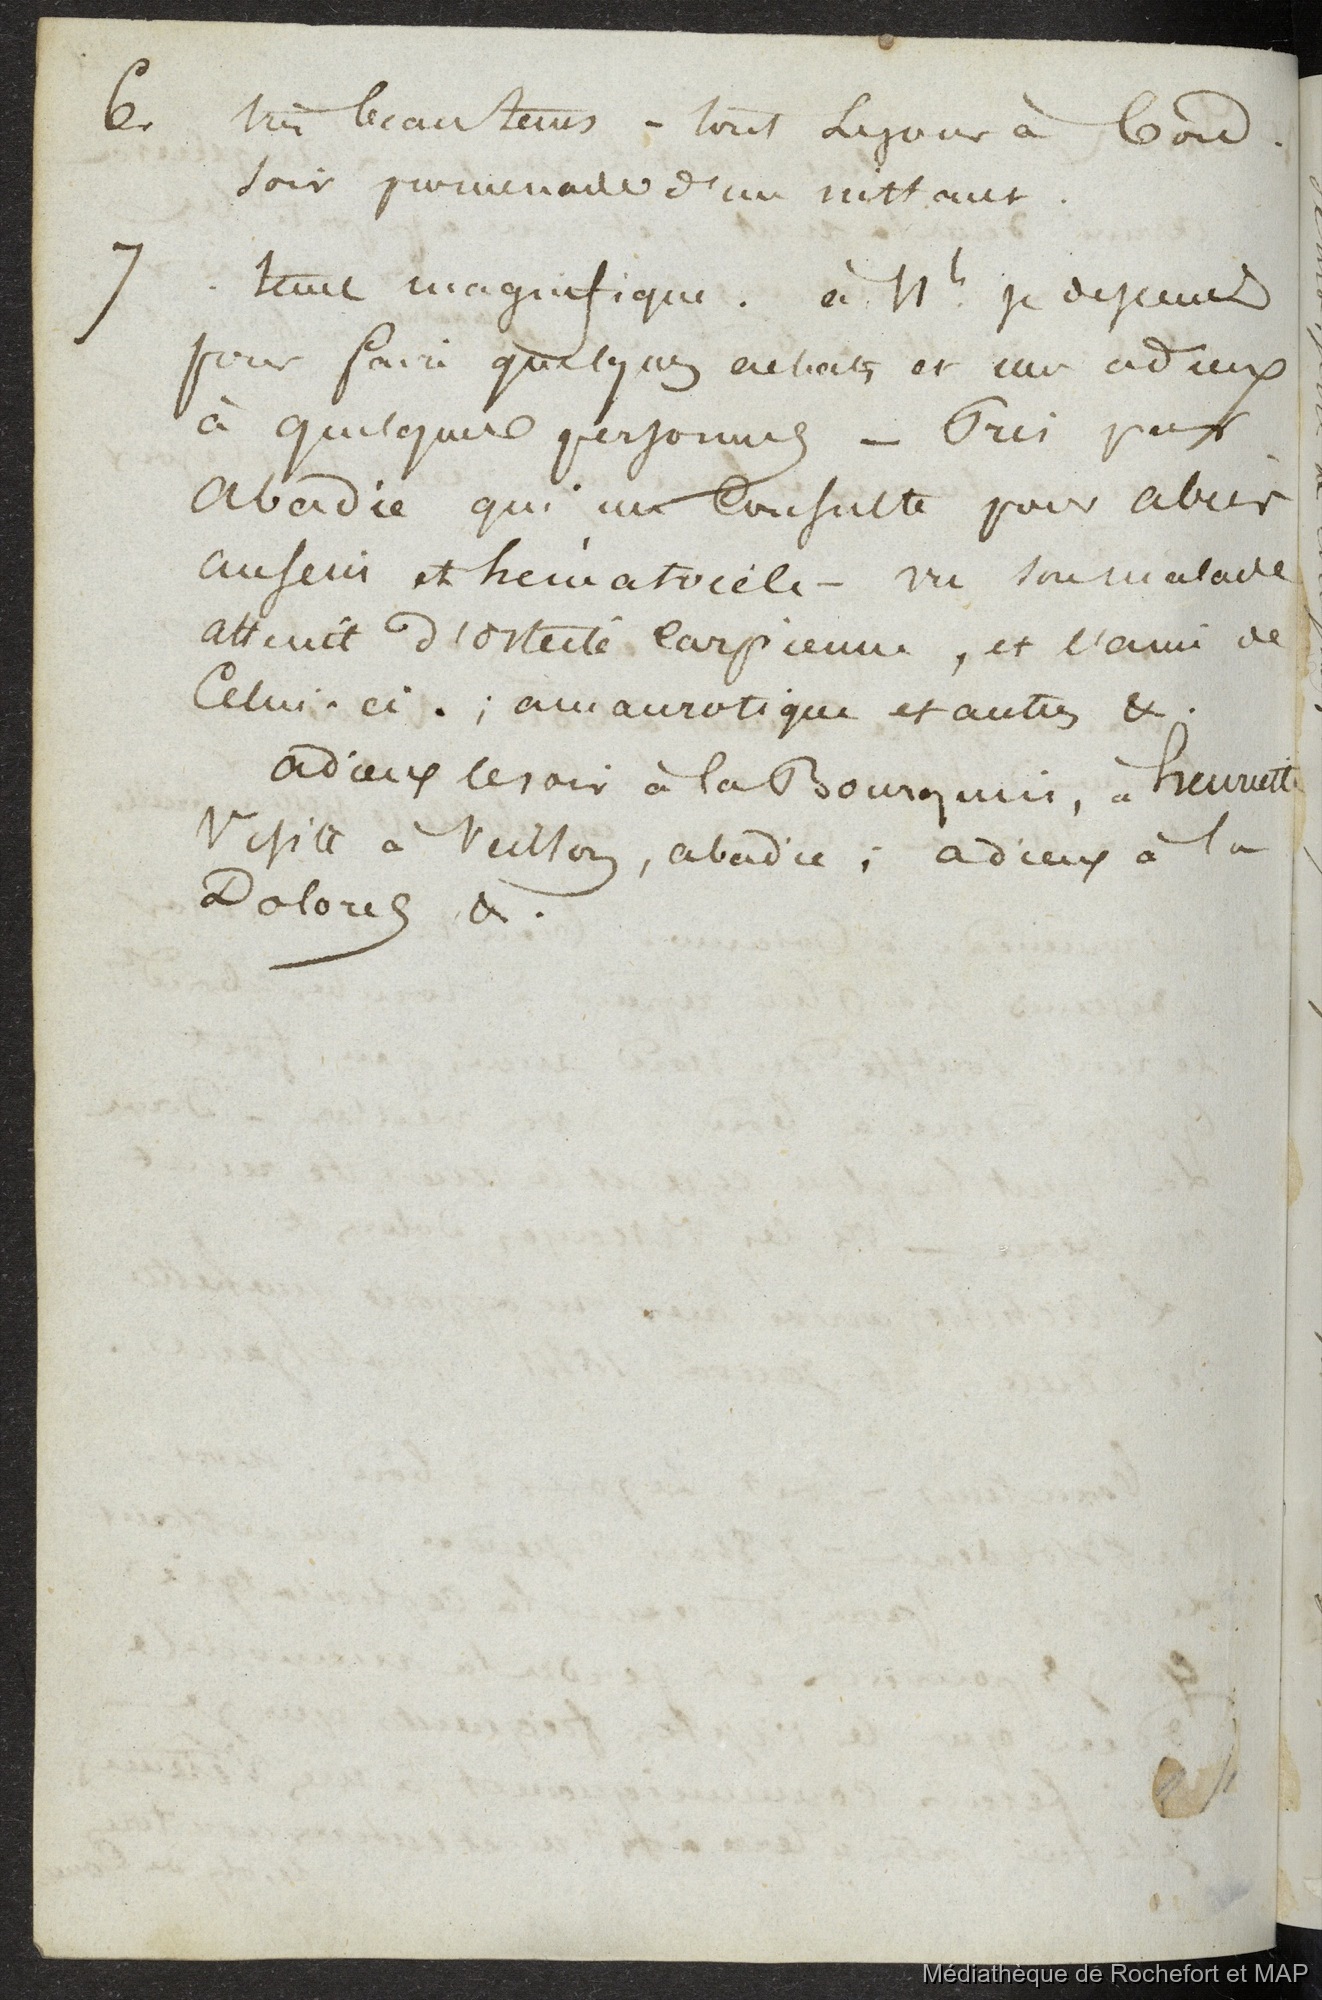 6. très beau tems - tout le jour à bord.
soir promenade d'un instant.
7. tems magnifique. à 11h. je descends
pour faire quelques achats et mes adieux
à quelques personnes - Pris par
abadie qui me consulte pour abcès
au sein et hématocèle - vu son malade
atteint d'ostéite carpienne, et l'ami de
Celui-ci. ; amaurotique et autres &.
adieux le soir à la Bourguin, à henriette
Visite à Veillon, abadie ; adieux à la
Dolores &.
Médiathèque de Rochefort et MAP